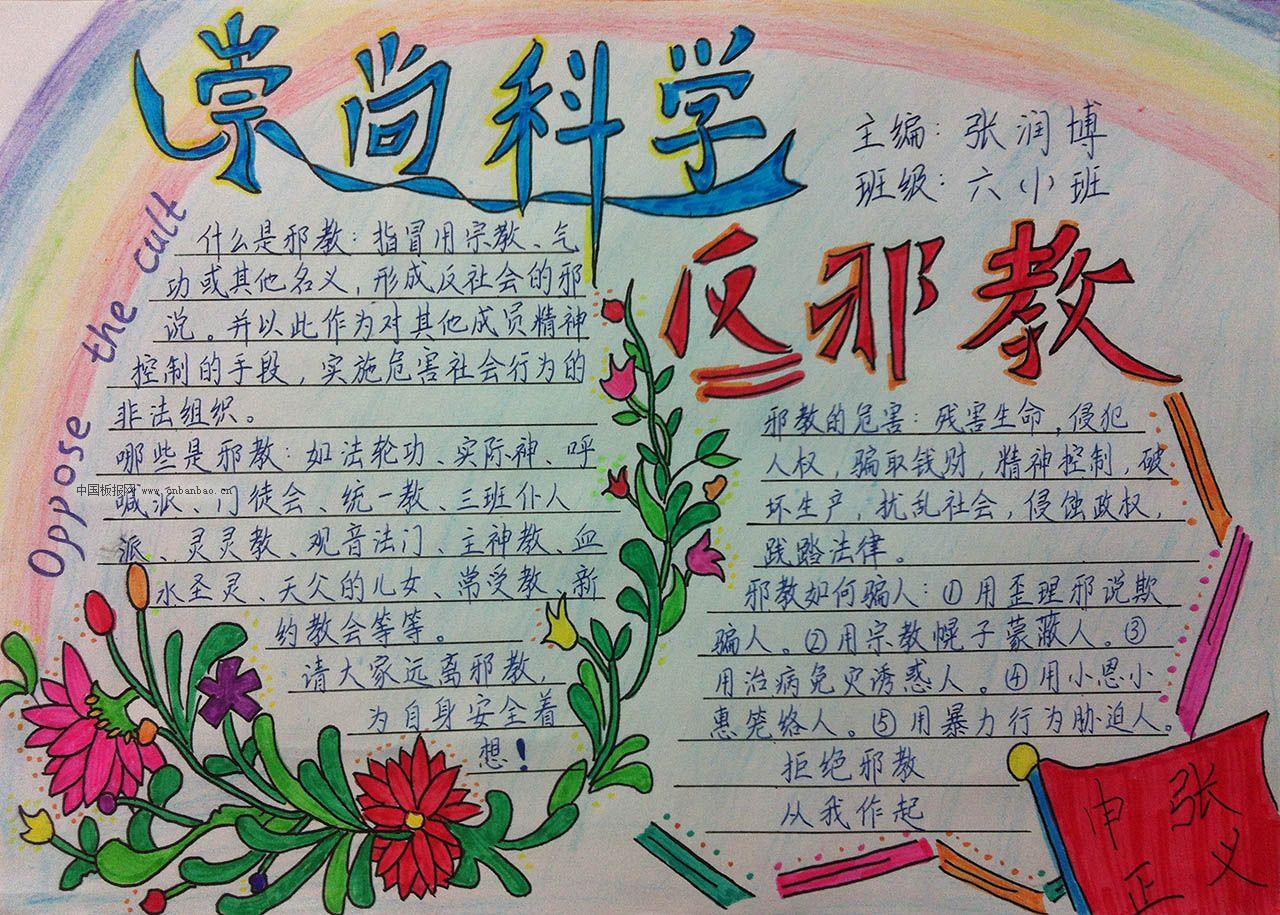 崇尚科学
主编：张润博
班级：六（1）班
反邪教
Oppose the cult
什么是邪教：指冒用宗教、气
功或其他名义，形成反社会的邪
说。并以此作为对其他成员精神
控制的手段，实施危害社会行为的
非法组织。
哪些是邪教：如法轮功、实际神、呼
喊派、门徒会、统一教、三班仆人
派、灵灵教、观音法门、主神教、血
水圣灵、天父的儿女、常受教、新
约教会等等。
请大家远离邪教，
为自身安全着
想！
中国板报网 www.cnbanbao.cn
邪教的危害：残害生命，侵犯
人权，骗取钱财，精神控制，破
坏生产，扰乱社会，侵蚀政权，
践踏法律。
邪教如何骗人：①用歪理邪说欺
骗人。②用宗教幌子蒙蔽人。③
用治病免灾诱惑人。④用小恩小
惠笼络人。⑤用暴力行为胁迫人。
拒绝邪教
从我作起
申张
正义